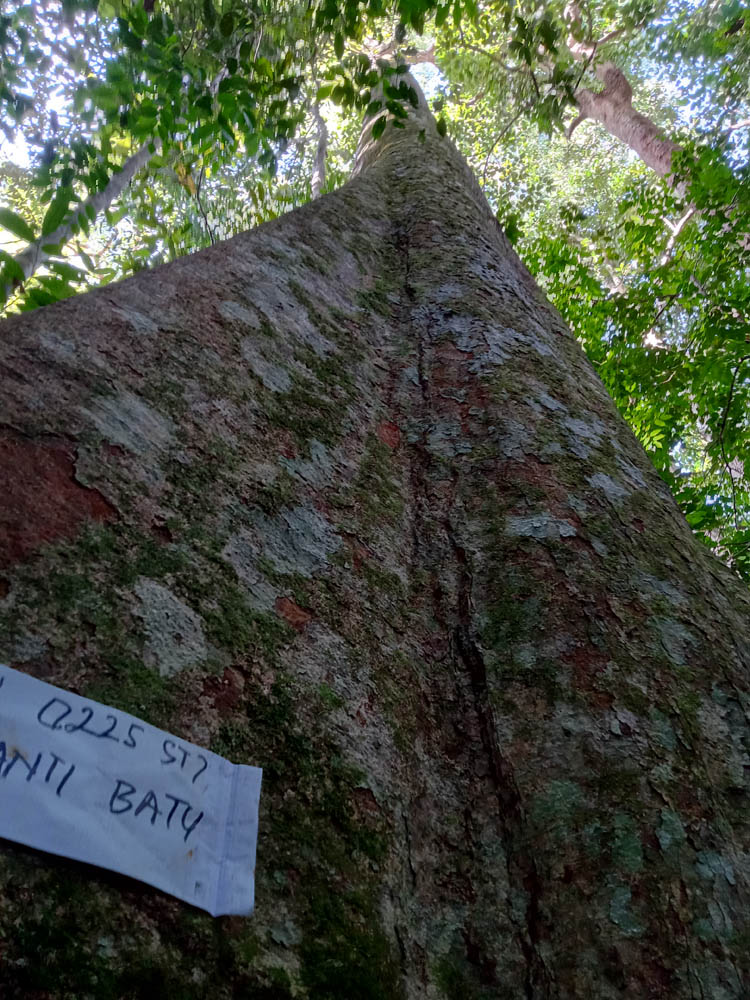 0.225 ST7
ANTI BATU